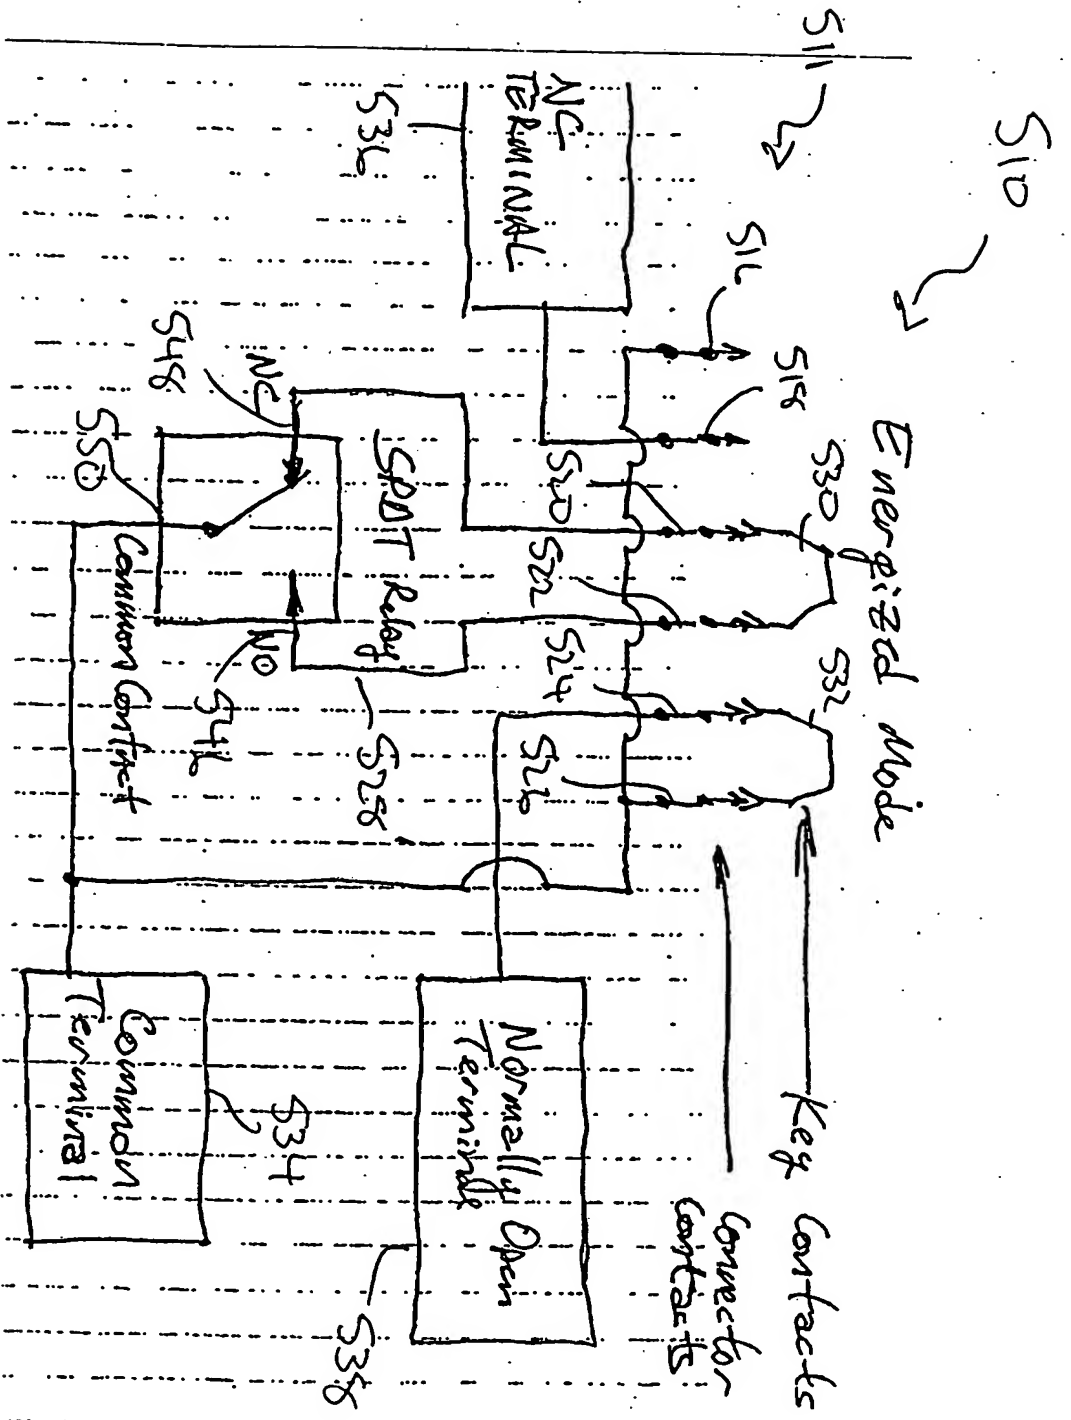 510
511
Energized Mode
530
532
Key Contacts
Connector
Contacts
516
518
520
522
524
526
NC
TERMINAL
536
SPDT Relay
528
NC
548
NO
546
550
Common Contact
Normally Open
Terminal
538
Common
Terminal
534